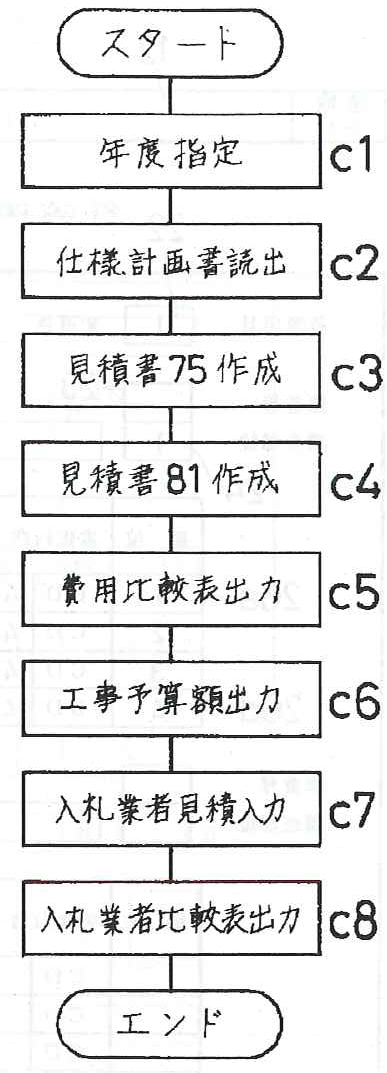 スタート
年度指定 c1
仕様計画書読出 c2
見積書75作成 c3
見積書81作成 c4
費用比較表出力 c5
工事予算額出力 c6
入札業者見積入力 c7
入札業者比較表出力 c8
エンド